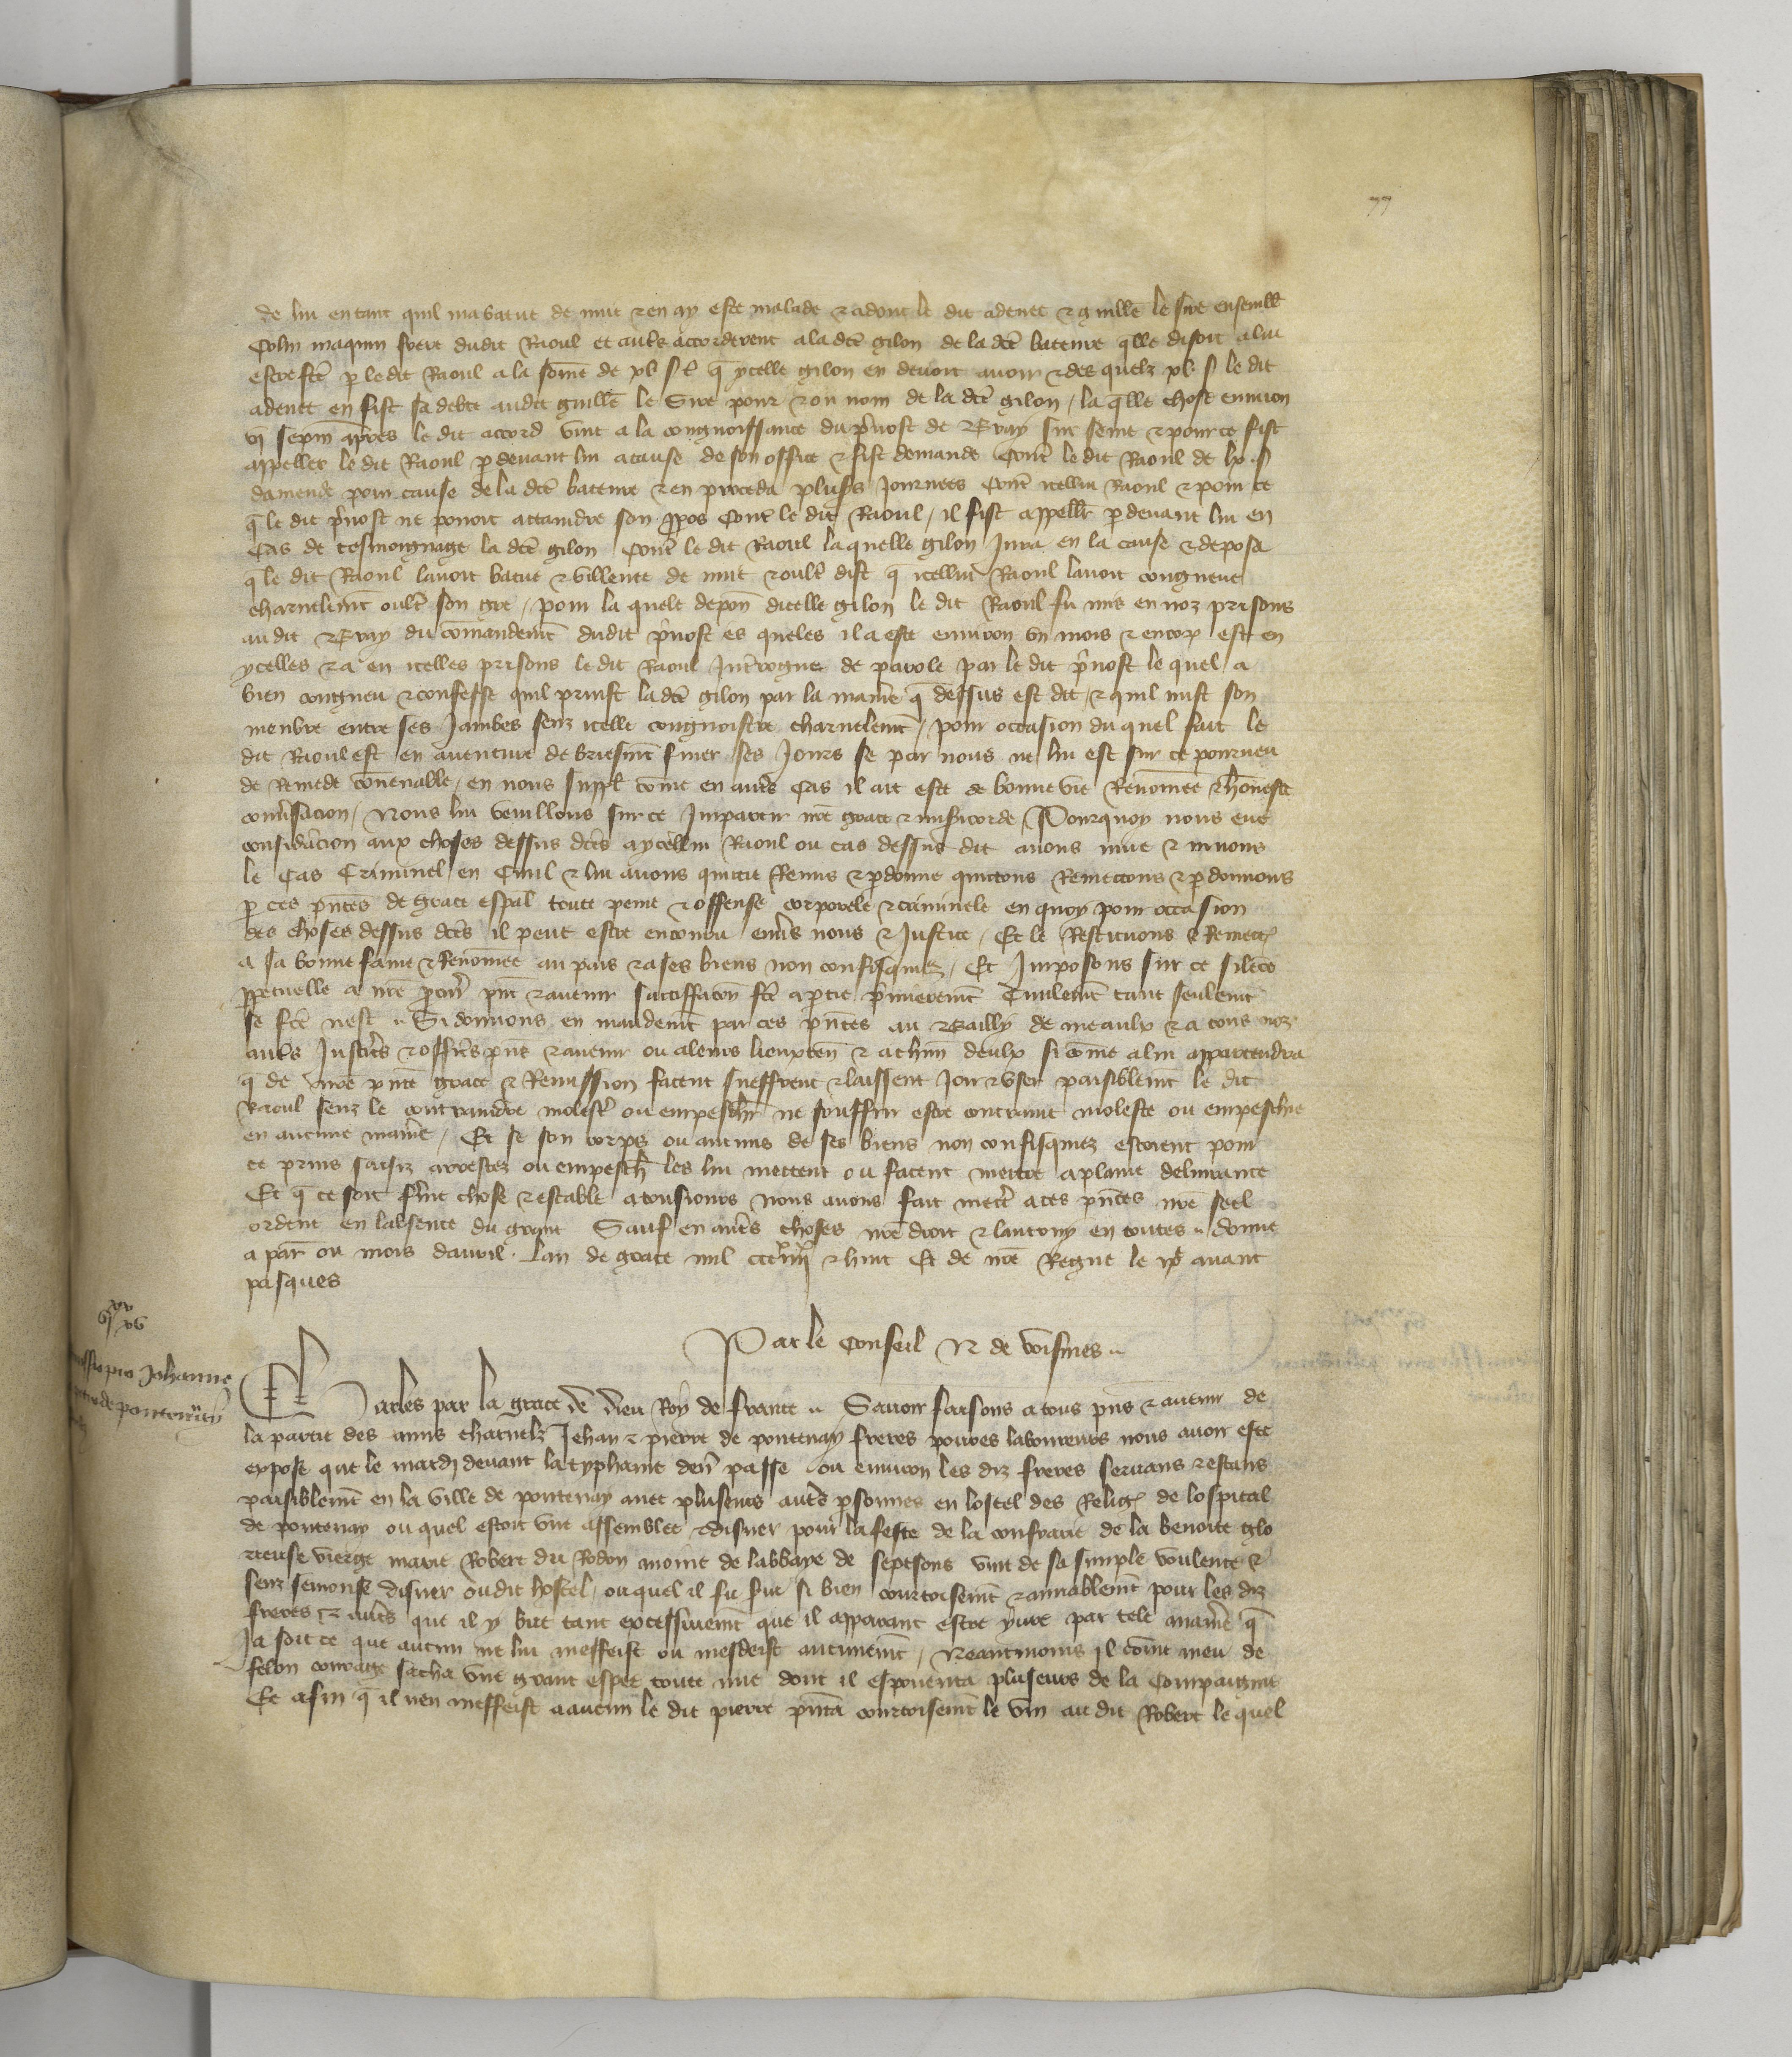 77
de lui en tant quil ma batue de nuit & en ay este malade & adont le dit adenet & guillē le sire ensemble
Colin maquin frere dudit Raoul et autrs accorderent a la dce gilon de la dce bateure qlle disoit a lui
estre fce p le dit Raoul a la some de xl s t q ycelle gilon en devoit avoir & des quelz xl s le dit
adenet en fist sa debte audit guillē le Sire pour & ou nom de la dce gilon / la qlle chose environ
vj sepm apres le dit accord vint a la congnoissance du pvost de Bray sur seine & pour ce fist
appeller le dit Raoul p devant lui a cause de son office & fist demande Contr le dit Raoul de lx s
damende pour cause de la dce bateure & en proceda plusrs Journees Contr icellui Raoul & pour ce
q le dit pvost ne povoit attaindre son ppos Contr le dit Raoul / il fist appellr p devant lui en
Cas de tesmoignage la dce gilon Contr le dit Raoul laquelle gilon Jura en la cause & deposa
q le dit Raoul lavoit batue & villenee de nuit & oultr dist q icellui Raoul lavoit congneue
charnelmt oultr son gre / pour la quele depon dicelle gilon le dit Raoul fu mis en noz prisons
au dit Bray du comandemt dudit pvost es queles il a este environ un mois & encor est en
ycelles & a en icelles prisons le dit Raoul Intrrogue de parole par le dit pvost le quel a
bien congneu & confesse quil prinst la dce gilon par la maniē q dessus est dit / & quil mist son
menbre entre ses Jambes senz icelle congnoistre charnelemt / pour occasion du quel fait le
dit Raoul est en aventure de briefmt finer ses Jours se par nous ne lui est sur ce pourveu
de Remede convenable / en nous suppl come en autrs Cas il ait este de bonne vie Renomee & honeste
conversacion / Nous lui veuillons sur ce Impartir nre grace & misicorde / Pourquoy nous eue
consideracion aux choses dessus dces a ycellui Raoul ou cas dessus dit avons mue & muons
le Cas Criminel en Civil & lui avons quicte Remis & pdonne quictons Remectons & pdonnons
p ces pntes de grace espal toute peine & offense corporele & criminele en quoy pour occasion
des choses dessus dces il peut estre encouru envrs nous & Justice / Et le Restituons & Remect
a sa bonne fame & Renomee au pais & a ses biens non confisquiez / Et Imposons sur ce silece
ppetuelle a nre pcur pnt & avenir satisffacon fce a ptie pmieremt Civilemt tant seulemt
se fce nest .. Si donnons en mandemt par ces pntes au Bailly de meaulx & a tous noz
autrs Justicrs & officrs pns & avenir ou a leurs lieuxten & a chun deulx si come a lui appartendra
q de nre pnte grace & Remission facent sueffrent & laissent Joir & user paisiblemt le dit
Raoul senz le contraindre molestr ou empeschr ne souffrir estre contraint moleste ou empeschie
en aucune maniē / Et se son corps ou aucuns de ses biens non confisquiez estoient pour
ce prins saisiz arrestez ou empesch les lui mettent ou facent mettre a plaine delivrance
Et q ce soit frme chose & estable a tousiours Nous avons fait mectr a ces pntes nre seel
ordene en labsence du grant Sauf en autrs choses nre droit & lautruy en toutes .. donne
a par ou mois davril . Lan de grace mil ccciiijxx & huit Et de nre Regne le ixe avant
pasques
Par le Conseil N de voisines ..
Johanne
de pontenay
Charles par la grace de dieu Roy de France .. Savoir faisons a tous pns & avenir de
la partie des amis charnelz Jehan & pierre de pontenay freres povres laboureurs nous avoir este
expose que le mardj devant la typhaine denr passe ou environ les diz freres servans & estans
paisiblemt en la ville de pontenay avec pluseurs autrs psonnes en lostel des Relig de lospital
de pontenay ou quel estoit une assemblee & disner pour la feste de la confrarie de la benoite glo
rieuse vierge marie Robert du Rodon moine de labbaye de septfons vint de sa simple voulente &
senz semonse disner oudit hostel / ou quel il fu servi si bien courtoisemt & amiablemt pour les diz
freres & autrs que il y but tant excessivemt que il apparant estre yvre par tele maniē q
Ja soit ce que aucun ne lui meffeist ou mesdeist aucunemt / Neantmoins il come meu de
felon courage sacha une grant espee toute nue dont il espouenta pluseurs de la Compaignie
Et afin q il nen meffeist a aucun le dit pierre pnta courtoisemt le vin au dit Robert le quel